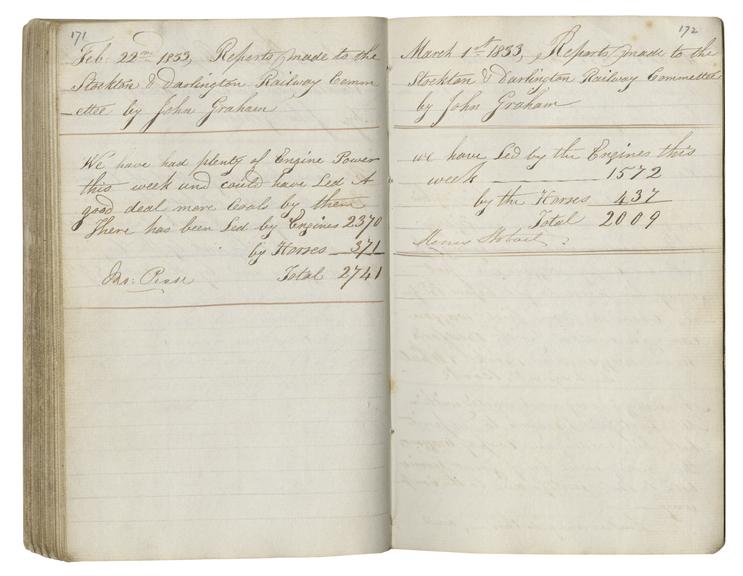 171
Feb. 22nd 1833, Reports made to the
Stockton & Darlington Railway Comm
-ettee by John Graham
We have had plenty of Engine Power
this week and could have Led A
good deal more Coals by them
There has been Led by Engines 2370
by Horses 371
Jos: Pease Total 2741
172
March 1st 1833, Reports made to the
Stockton & Darlington Railway Committee
by John Graham
we have Led by the Engines this
week 1572
by the Horses 437
Total 2009
Hobart